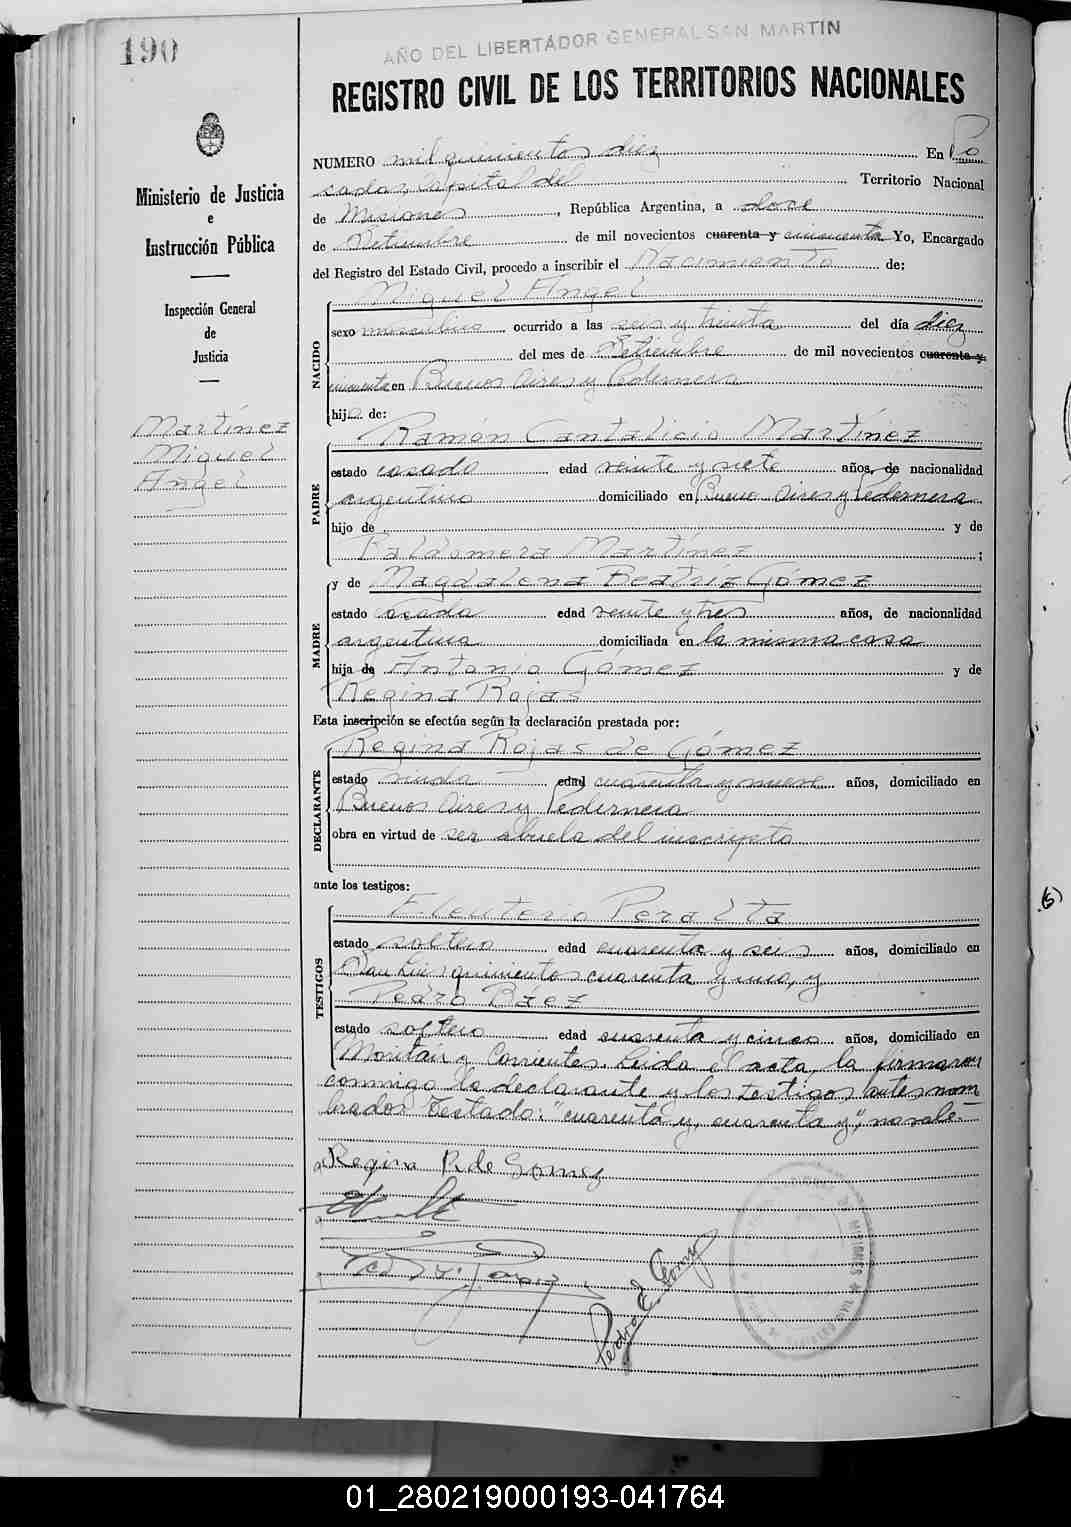 190
AÑO DEL LIBERTADOR GENERAL SAN MARTIN
REGISTRO CIVIL DE LOS TERRITORIOS NACIONALES
Ministerio de Justicia
e
Instrucción Pública
Inspección General
de
Justicia
Martínez
Miguel
Angel
NUMERO mil quinientos diez En Po
sadas, Capital del Territorio Nacional
de Misiones, República Argentina, a doce
de Setiembre de mil novecientos cuarenta y cincuenta Yo, Encargado
del Registro del Estado Civil, procedo a inscribir el Nacimiento de:
NACIDO
Miguel Angel
sexo masculino ocurrido a las seis y treinta del día diez
del mes de Setiembre de mil novecientos cuarenta y
cincuenta en Buenos Aires y Pedernera
hijo de:
PADRE
Ramón Cantalicio Martínez
estado casado edad veinte y siete años, de nacionalidad
argentino domiciliado en Buenos Aires y Pedernera
hijo de y de
Baldomera Martínez ;
MADRE
y de Magdalena Beatríz Gómez
estado casada edad veinte y tres años, de nacionalidad
argentina domiciliada en la misma casa
hija de Antonio Gómez y de
Regina Rojas
Esta inscripción se efectúa según la declaración prestada por:
DECLARANTE
Regina Rojas de Gómez
estado viuda edad cuarenta y nueve años, domiciliado en
Buenos Aires y Pedernera
obra en virtud de ser abuela del inscripto
ante los testigos:
TESTIGOS
Eleuterio Peralta
estado soltero edad cuarenta y seis años, domiciliado en
San Luis quinientos cuarenta y uno, y
Pedro Báez
estado soltero edad cuarenta y cinco años, domiciliado en
Moritán y Corrientes. Leída el acta, la firmaron
conmigo la declarante y los testigos antes nom
brados Testado: "cuarenta y, cuarenta y", no vale.-
Regina R. de Gomez
Pedro E. Gomez
(5)
01_280219000193-041764